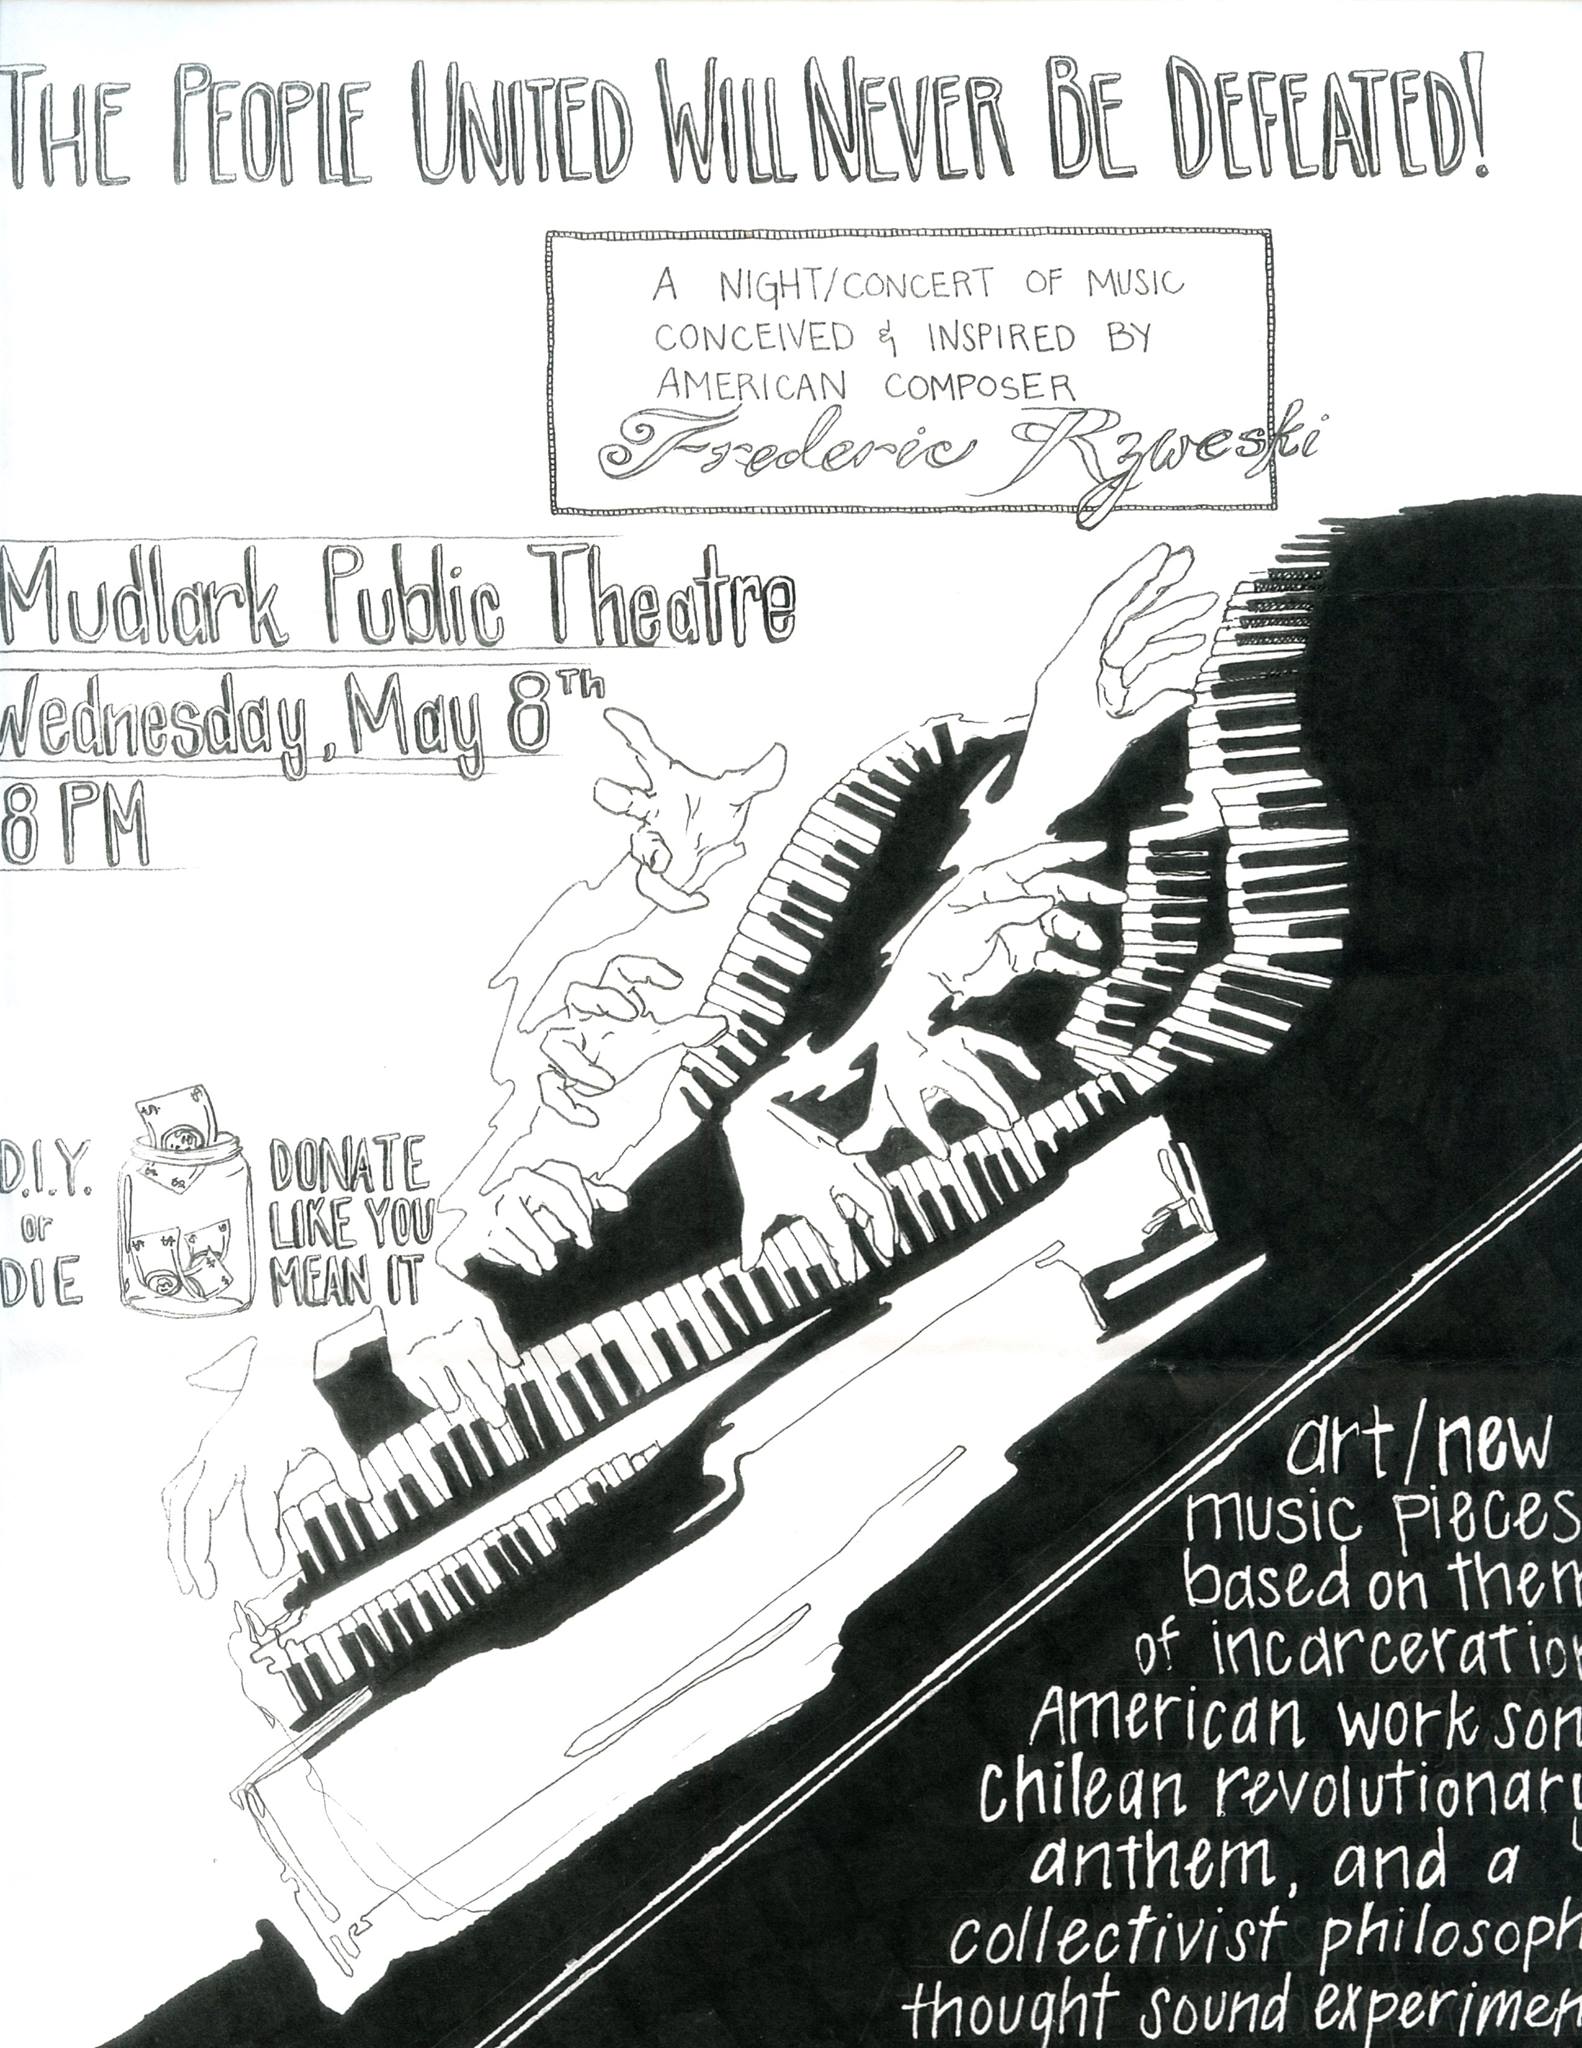 THE PEOPLE UNITED WILL NEVER BE DEFEATED!
A NIGHT/CONCERT OF MUSIC
CONCEIVED & INSPIRED BY
AMERICAN COMPOSER
Frederic Rzweski
Mudlark Public Theatre
Wednesday, May 8Th
8 PM
D.I.Y.
or
DIE
DONATE
LIKE YOU
MEAN IT
art/new
music pieces
based on them
of incarceration
American work son
chilean revolutionary
anthem, and a
collectivist philosoph
thought sound experimen